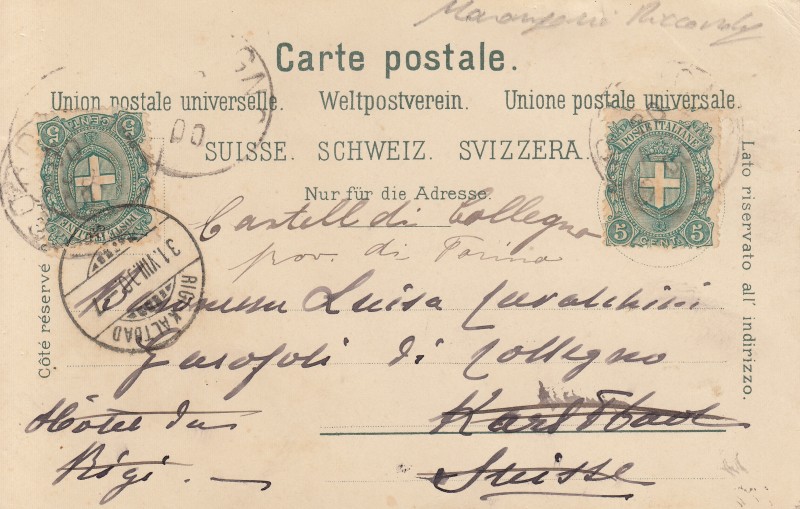 Carte postale.
Union postale universelle. Weltpostverein. Unione postale universale.
SUISSE. SCHWEIZ. SVIZZERA.
Nur für die Adresse.
Côté réservé
Lato riservato all' indirizzo.
CENT. 5
POSTE ITALIANE
POSTE ITALIANE
5 CENT. 5
31.VIII.00
RIGI KALTBAD
Castell di Collegno
prov. di Torino
Luisa
Garofoli di Collegno
Hôtel du
Rigi.
Karltbad
Suisse